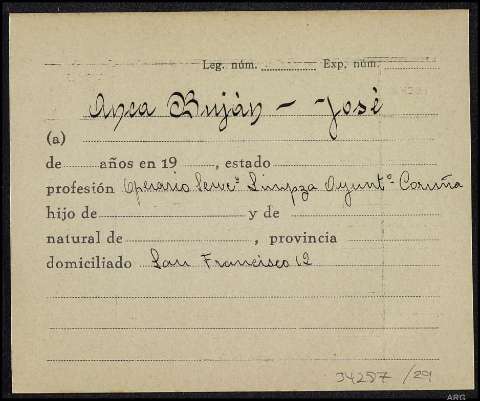 Leg. núm. Exp. núm.
Anea Buján - José
(a)
de años en 19 , estado
profesión Operario Servcº Limpza Ayuntº Coruña
hijo de y de
natural de , provincia
domiciliado San Francisco 12
34257 /29
ARG